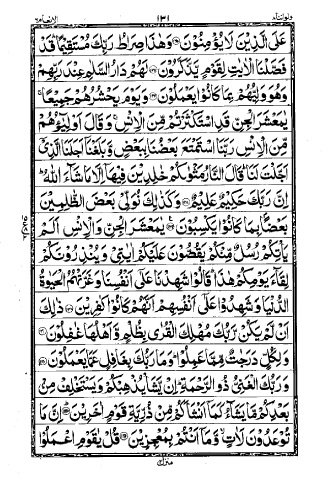 ولواننا۸ ۱۳۱ الانعام۶
عَلَى الَّذِيْنَ لَا يُؤْمِنُوْنَ وَهٰذَا صِرَاطُ رَبِّكَ مُسْتَقِيْمًا قَدْ
فَصَّلْنَا الْاٰيٰتِ لِقَوْمٍ يَّذَّكَّرُوْنَ لَهُمْ دَارُ السَّلٰمِ عِنْدَ رَبِّهِمْ
وَهُوَ وَلِيُّهُمْ بِمَا كَانُوْا يَعْمَلُوْنَ وَيَوْمَ يَحْشُرُهُمْ جَمِيْعًا
يٰمَعْشَرَ الْجِنِّ قَدِ اسْتَكْثَرْتُمْ مِّنَ الْاِنْسِ وَقَالَ اَوْلِيٰٓؤُهُمْ
مِّنَ الْاِنْسِ رَبَّنَا اسْتَمْتَعَ بَعْضُنَا بِبَعْضٍ وَّبَلَغْنَا اَجَلَنَا الَّذِيْ
اَجَّلْتَ لَنَا قَالَ النَّارُ مَثْوٰىكُمْ خٰلِدِيْنَ فِيْهَا اِلَّا مَا شَآءَ اللّٰهُ
اِنَّ رَبَّكَ حَكِيْمٌ عَلِيْمٌ وَكَذٰلِكَ نُوَلِّيْ بَعْضَ الظّٰلِمِيْنَ
بَعْضًا بِمَا كَانُوْا يَكْسِبُوْنَ يٰمَعْشَرَ الْجِنِّ وَالْاِنْسِ اَلَمْ
يَاْتِكُمْ رُسُلٌ مِّنْكُمْ يَقُصُّوْنَ عَلَيْكُمْ اٰيٰتِيْ وَيُنْذِرُوْنَكُمْ
لِقَآءَ يَوْمِكُمْ هٰذَا قَالُوْا شَهِدْنَا عَلٰٓى اَنْفُسِنَا وَغَرَّتْهُمُ الْحَيٰوةُ
الدُّنْيَا وَشَهِدُوْا عَلٰٓى اَنْفُسِهِمْ اَنَّهُمْ كَانُوْا كٰفِرِيْنَ ذٰلِكَ
اَنْ لَّمْ يَكُنْ رَّبُّكَ مُهْلِكَ الْقُرٰى بِظُلْمٍ وَّاَهْلُهَا غٰفِلُوْنَ
وَلِكُلٍّ دَرَجٰتٌ مِّمَّا عَمِلُوْا وَمَا رَبُّكَ بِغَافِلٍ عَمَّا يَعْمَلُوْنَ
وَرَبُّكَ الْغَنِيُّ ذُو الرَّحْمَةِ اِنْ يَّشَاْ يُذْهِبْكُمْ وَيَسْتَخْلِفْ مِنْ
بَعْدِكُمْ مَّا يَشَآءُ كَمَآ اَنْشَاَكُمْ مِّنْ ذُرِّيَّةِ قَوْمٍ اٰخَرِيْنَ اِنَّ مَا
تُوْعَدُوْنَ لَاٰتٍ وَّمَآ اَنْتُمْ بِمُعْجِزِيْنَ قُلْ يٰقَوْمِ اعْمَلُوْا
منزل